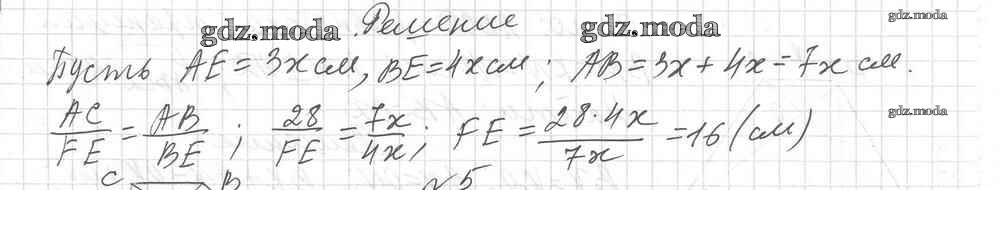 gdz.moda Решение gdz.moda gdz.moda
Пусть AE = 3x см, BE = 4x см; AB = 3x + 4x = 7x см.
gdz.moda
AC/FE = AB/BE; 28/FE = 7x/4x; FE = 28·4x/7x = 16 (см)
C B №5